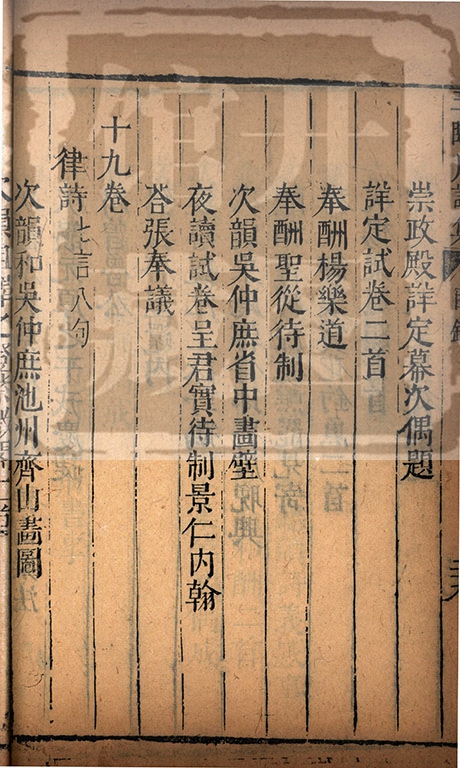 崇政殿詳定幕次偶題
詳定試卷二首
奉酬楊樂道
奉酬聖從待制
次韻吳仲庶省中畫壁
夜讀試卷呈君實待制景仁內翰
荅張奉議
十九卷
律詩七言八句
次韻和吳仲庶池州齊山畵圖